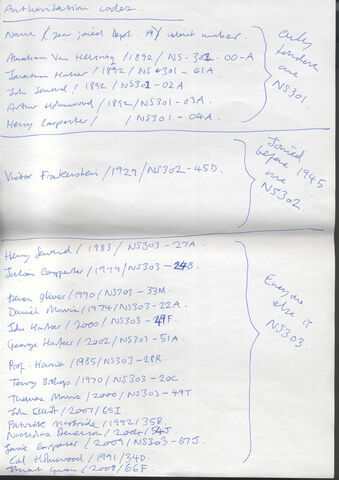 Authorisation codes.
Name / year joined dept 19 / ident number.
Abraham Van Helsing / 1892 / NS-301-00-A
Jonathan Harker / 1892 / NS301-01A
John Seward / 1892 / NS301-02A
Arthur Holmwood / 1892 / NS301-03A
Henry Carpenter / / NS301-04A
Only
founders
are
NS301.
Victor Frankenstein / 1929 / NS302-45D.
Joined
before 1945
are
NS302
Henry Seward / 1983 / NS303-27A.
Julian Carpenter / 1979 / NS303-24B.
Devon 1990 / NS303-33M.
Daniel Morris / 1974 / NS303-22A.
John Harker / 2000 / NS303-49F.
George Harker / 2002 / NS303-51A
Prof. Harris / 1985 / NS303-28R.
Terry Bishop / 1970 / NS303-20C
Thomas Morris / 2000 / NS303-49T.
John Elliott / 2007 / 65I
Patrick McBride / 1992 / 35B.
Nicholas Stevenson / 2004 / 54J.
Jamie Carpenter / 2009 / NS303-67J.
Cal Holmwood / 1991 / 34D.
Stuart 2008 / 66F.
Everyone
else is
NS303.